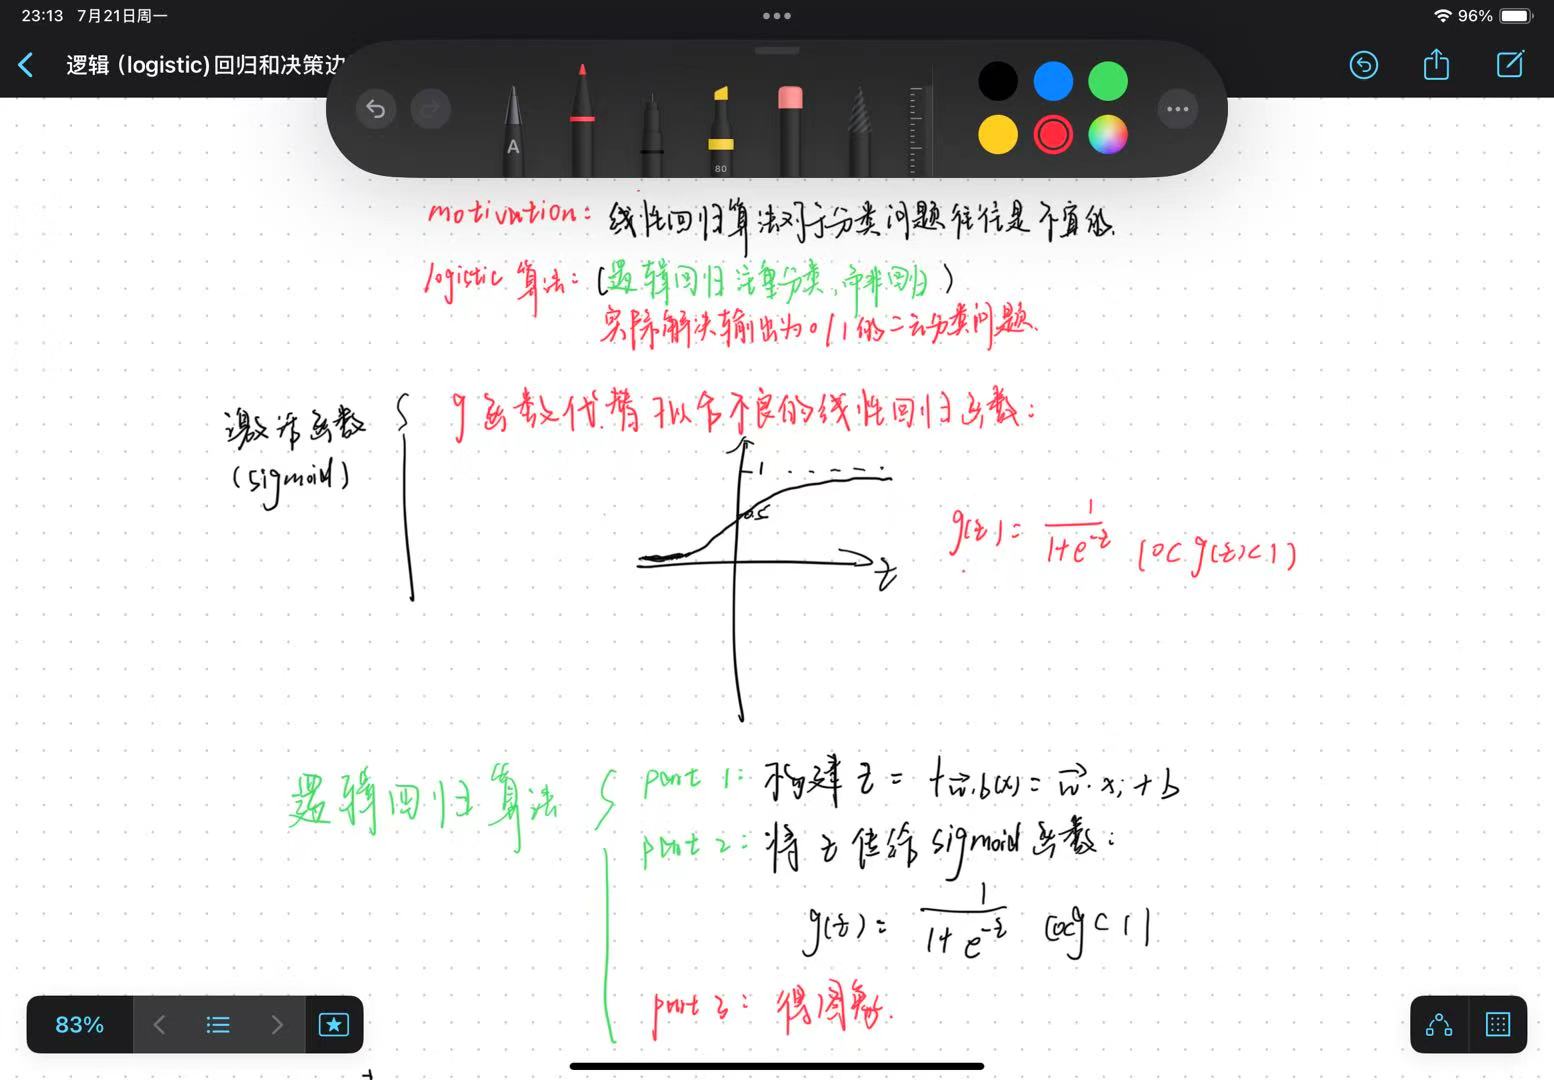 23:13 7月21日周一
96%
逻辑 (logistic)回归和决策边
A
80
motivation: 线性回归算法对于分类问题往往是不宜的.
logistic 算法: (逻辑回归注重分类,而非回归)
实际解决输出为0/1的二元分类问题.
激活函数
(sigmoid)
g函数代替拟合不良的线性回归函数:
1
0.5
z
g(z) = 1/(1+e^-z) (0<g(z)<1)
逻辑回归算法
part 1: 构建 z = f w⃗.b(x) = w⃗. xi + b
part 2: 将 z 传给 sigmoid 函数:
g(z) = 1/(1+e^-z) (0<g<1)
part 3: 得图象.
83%